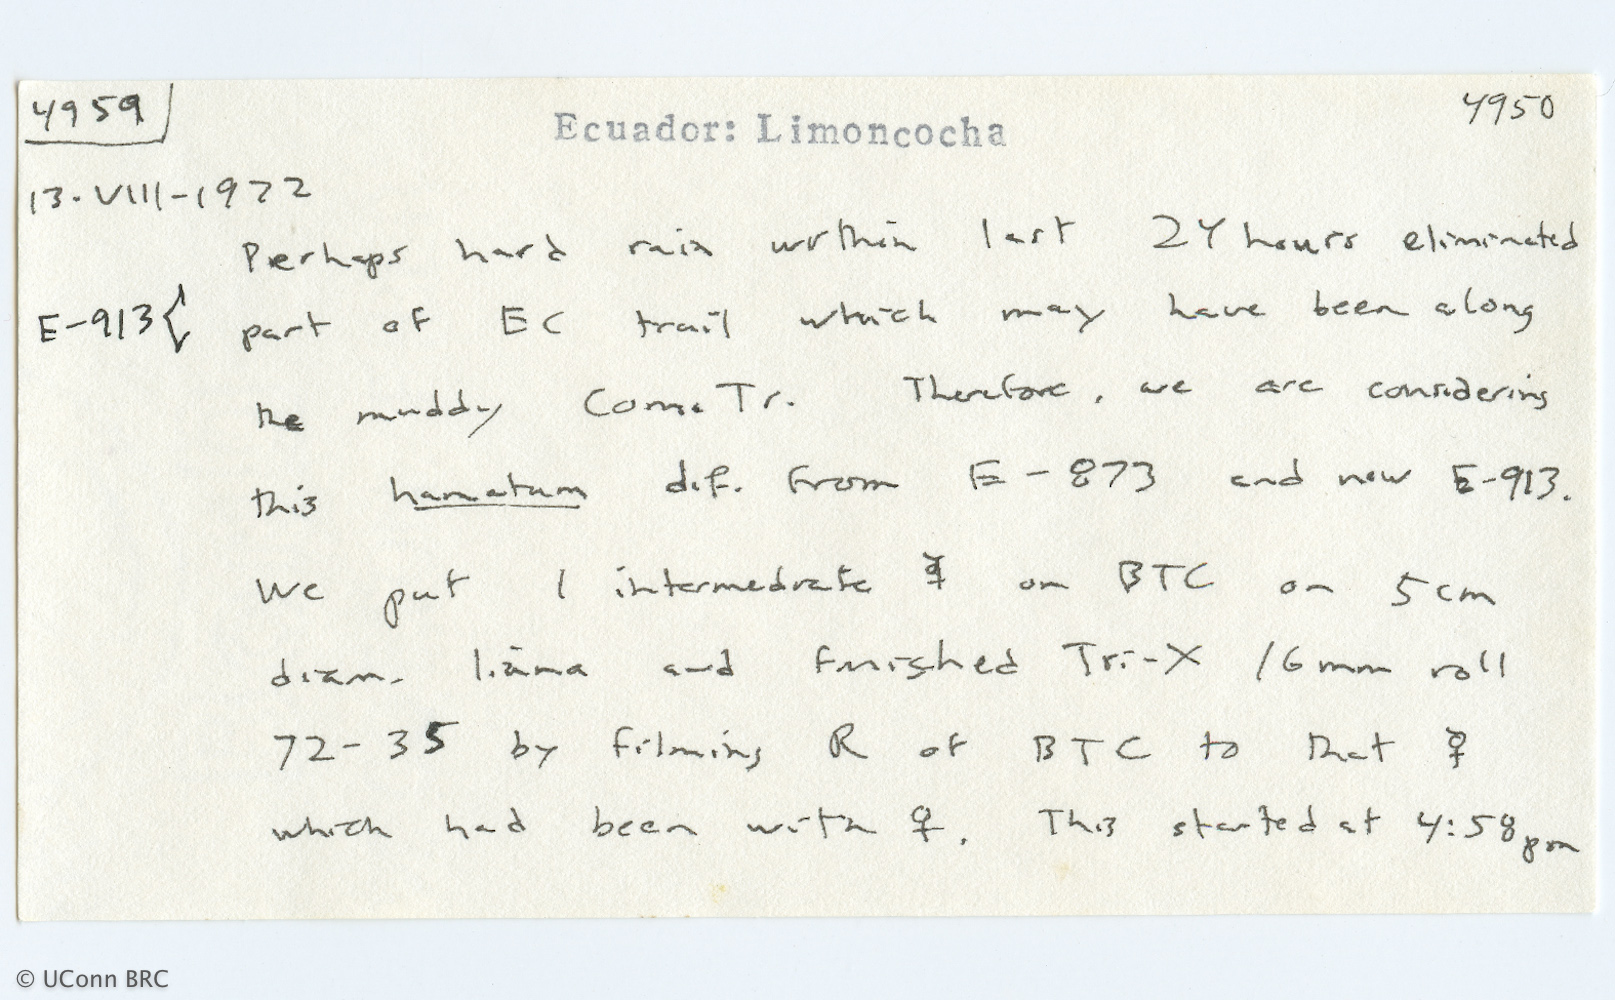 4959
Ecuador: Limoncocha
4950
13.VIII-1972
Perhaps hard rain within last 24 hours eliminated
E-913{ part of EC trail which may have been along
the muddy Tr. Therefore, we are considering
this hamatum dif. from E-873 and new E-913.
We put 1 intermediate ☿ on BTC on 5cm
diam. liana and finished Tri-X 16mm roll
72-35 by filming R of BTC to that ☿
which had been with ♀. This started at 4:58pm
© UConn BRC